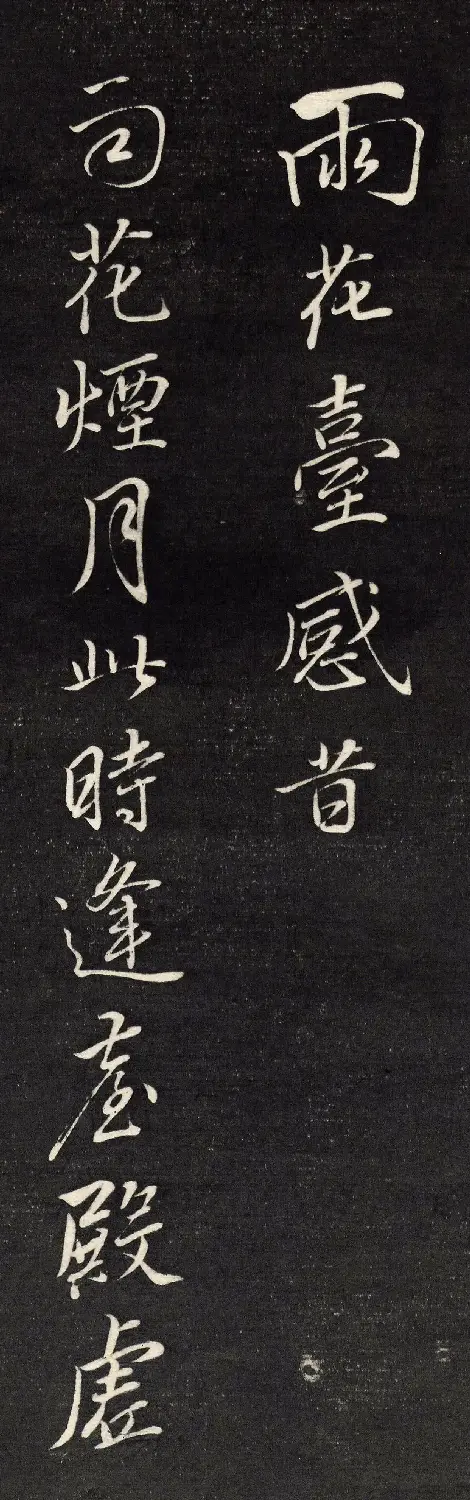 雨花臺感昔
百花煙月此時逢臺殿虛